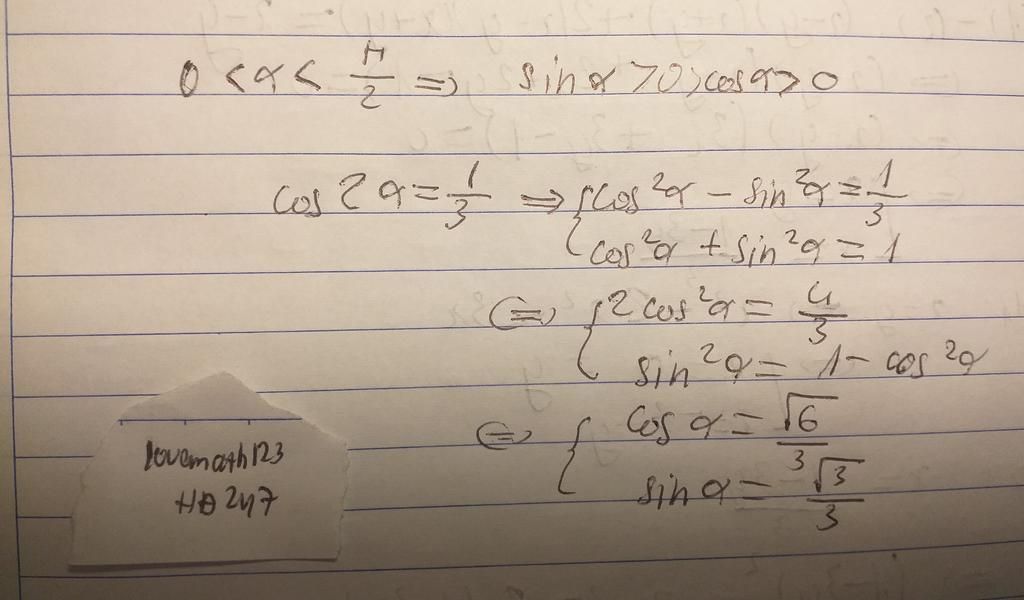 0 < α < π/2 => sinα > 0; cosα > 0
cos 2α = 1/3 => { cos²α - sin²α = 1/3
cos²α + sin²α = 1
<=> { 2cos²α = 4/3
sin²α = 1 - cos²α
<=> { cos α = √6/3
sin α = √3/3
lovemath123
HD247